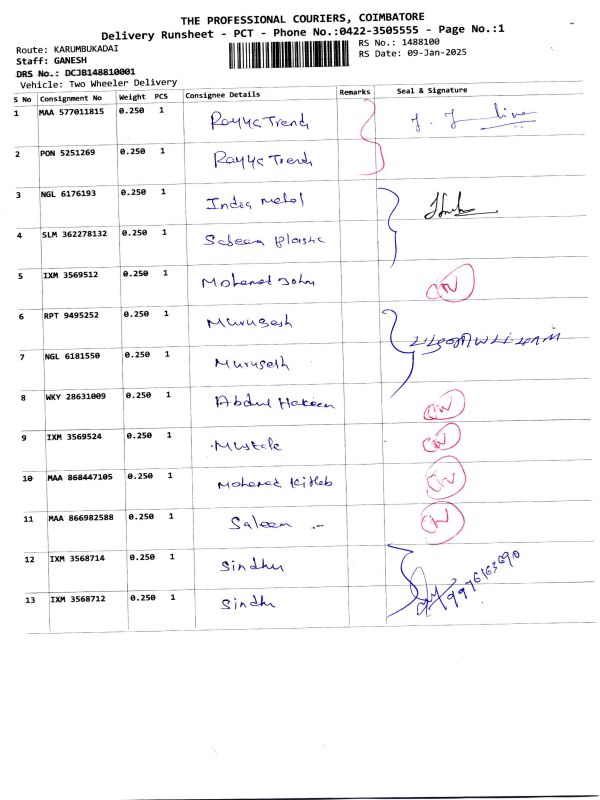 THE PROFESSIONAL COURIERS, COIMBATORE
Delivery Runsheet - PCT - Phone No.:0422-3505555 - Page No.:1
Route: KARUMBUKADAI
RS No.: 1488100
Staff: GANESH
RS Date: 09-Jan-2025
DRS No.: DCJB148810001
Vehicle: Two Wheeler Delivery
S No Consignment No Weight PCS Consignee Details Remarks Seal & Signature
1 MAA 577011815 0.250 1 Rayys Trends
2 PON 5251269 0.250 1 Rayys Trends
3 NGL 6176193 0.250 1 Indra Metal
4 SLM 362278132 0.250 1 Sabeena Plastic
5 IXM 3569512 0.250 1 Mohamed John
6 RPT 9495252 0.250 1 Murugesh
7 NGL 6181550 0.250 1 Murugesh
8 WKY 28631009 0.250 1 Abdul Hakeem
9 IXM 3569524 0.250 1
10 MAA 868447105 0.250 1 Mohamed
11 MAA 866982588 0.250 1 Saleem
12 IXM 3568714 0.250 1 Sindhu
13 IXM 3568712 0.250 1 Sindhu 9976163690